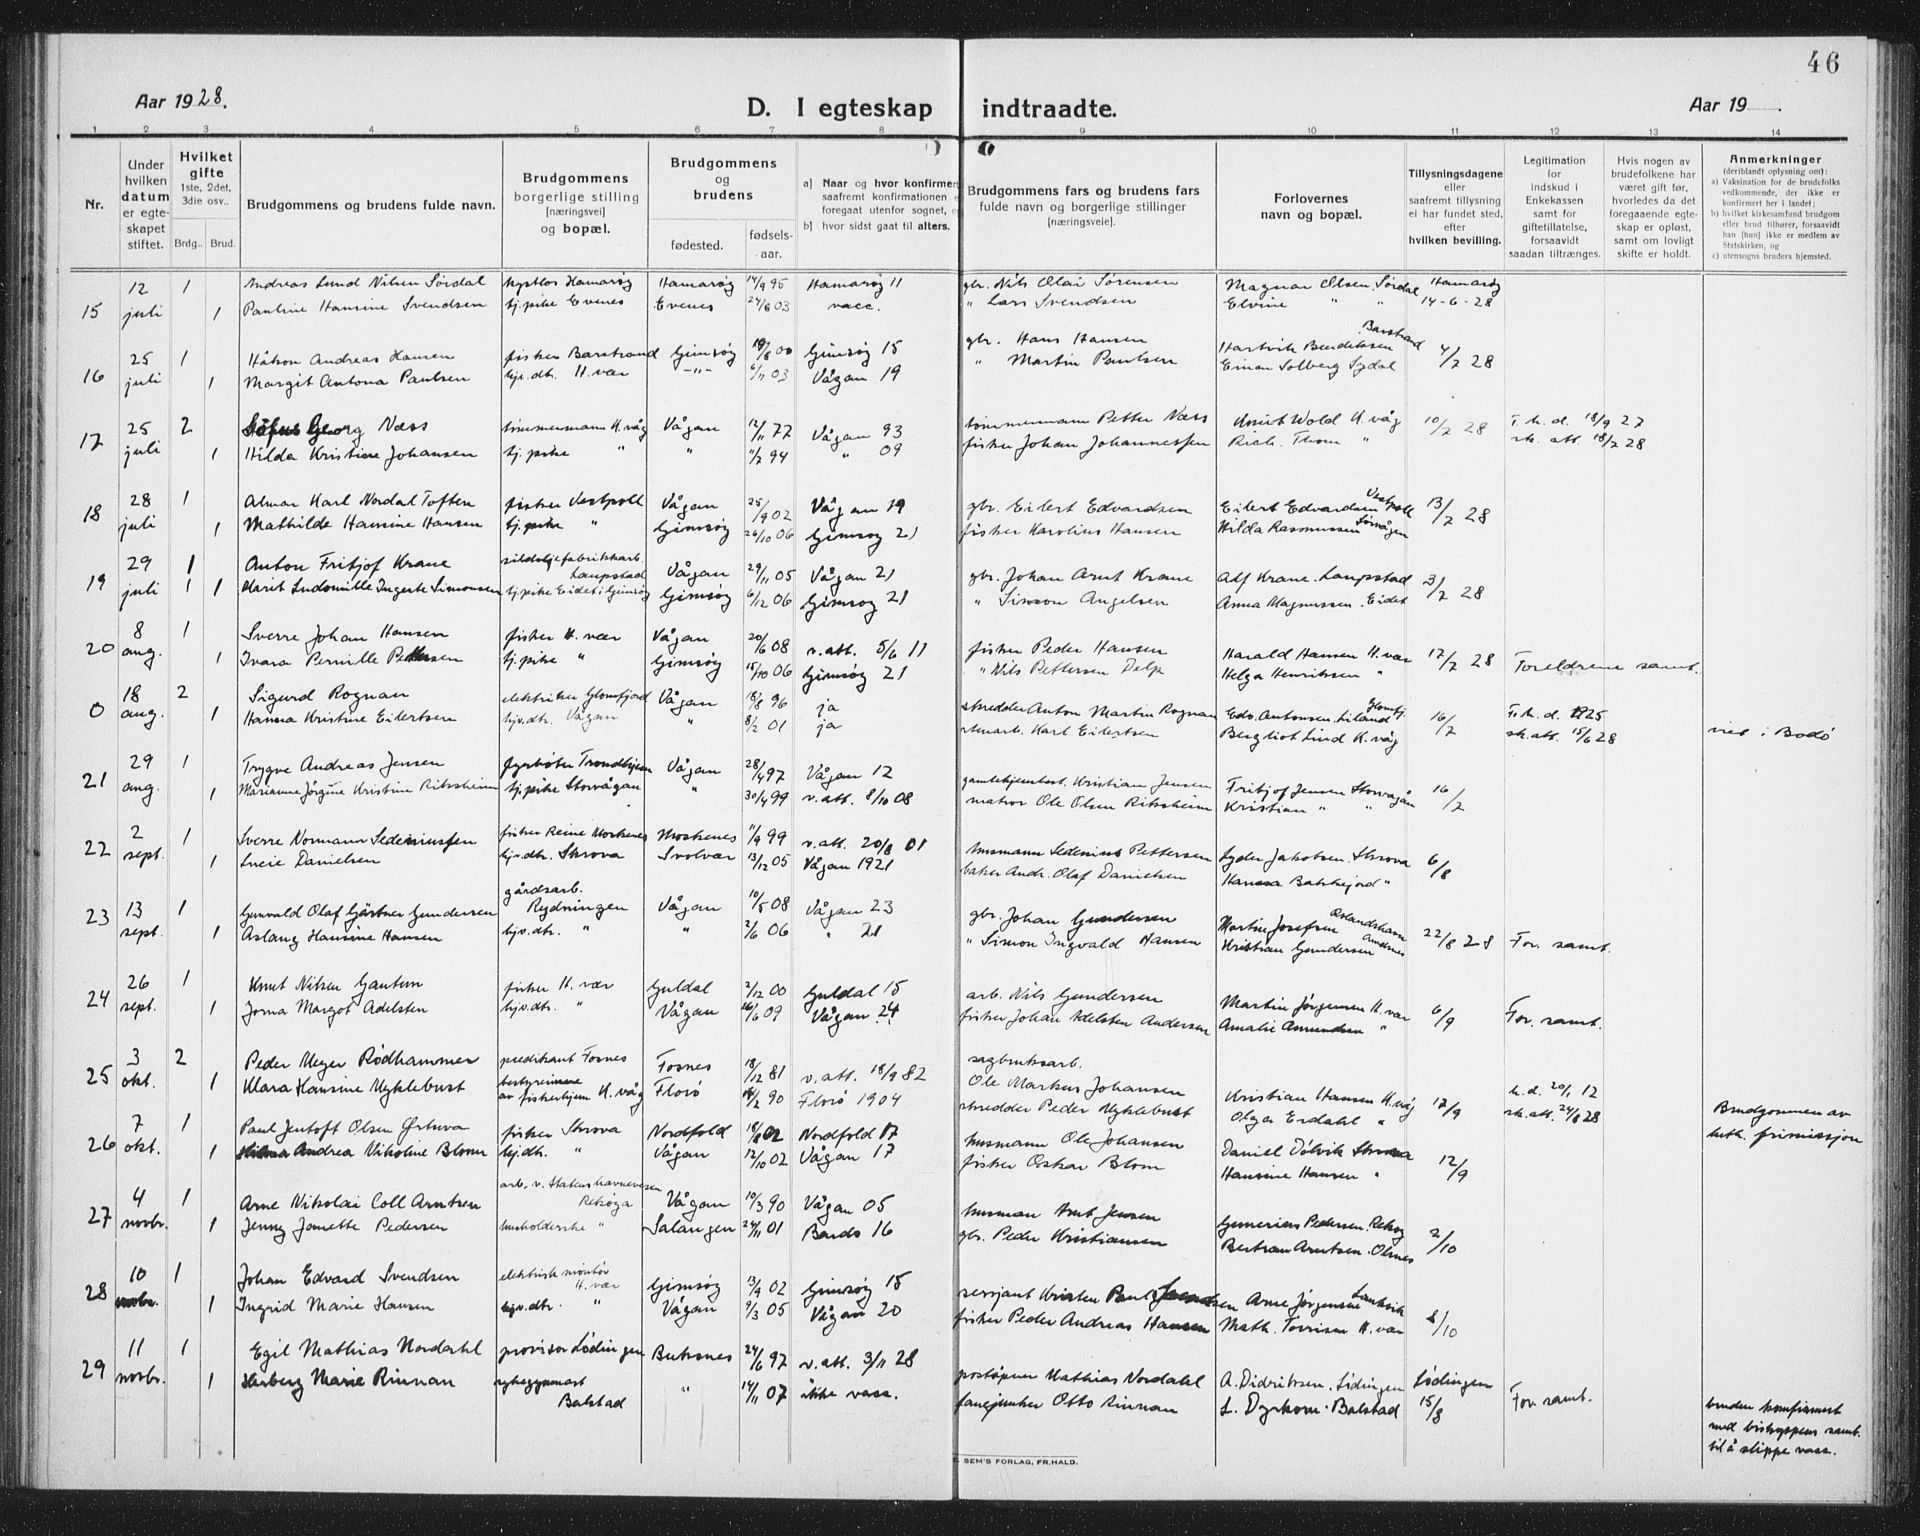 46
Aar 1928.
D. I egteskap indtraadte.
Aar 19 .
1 2 3 4 5 6 7 8 9 10 11 12 13 14
Nr.
Under hvilken datum er egte-skapet stiftet.
Hvilket gifte 1ste, 2det, 3die osv..
Brdg.. Brud.
Brudgommens og brudens fulde navn.
Brudgommens borgerlige stilling [næringsvei] og bopæl.
Brudgommens og brudens
fødested.
fødsels-aar.
a] Naar og hvor konfirmer
saafremt konfirmationen
foregaat utenfor sognet,
b] hvor sidst gaat til alters.
Brudgommens fars og brudens fars
fulde navn og borgerlige stillinger
[næringsveie].
Forlovernes
navn og bopæl.
Tillysningsdagene
eller
saafremt tillysning
ei har fundet sted,
efter
hvilken bevilling.
Legitimation
for
indskud i
Enkekassen
samt for
giftetillatelse,
forsaavidt
saadan tiltrænges.
Hvis nogen av
brudefolkene har
været gift før,
hvorledes da det
foregaaende egte-
skap er opløst,
samt om lovligt
skifte er holdt.
Anmerkninger
(deriblandt oplysning om):
a) Vaksination for de brudefolks
vedkommende, der ikke er
konfirmert her i landet;
b) hvilket kirkesamfund brudgom
eller brud tilhører, forsaavidt
han [hun] ikke er medlem av
Statskirken, og
c) utensogns bruders hjemsted.
15 12 juli 1 Andreas Lund Nilsen Sørdal Hamarøy Hamarøy 14/9 95 Hamarøy 11 gbr. Nils Olai Sørensen Magnar Olsen Sørdal Hamarøy
1 Pauline Hansine Svendsen tj. pike Evenes Evenes 24/8 03 vacc. " Lars Svendsen Elvine " " 14-6-28
16 25 juli 1 Håkon Andreas Hansen fisker Barstrand Gimsøy 19/8 00 Gimsøy 15 gbr. Hans Hansen Hartvik Bendiksen Barstrand 4/7 28
1 Margit Antona Paulsen hjv. dtr. H. vær -"- 6/11 03 Vågan 19 " Martin Paulsen Einan Solberg Sydal
17 25 juli 2 Georg Næss tømmermann K. våg Vågan 12/11 77 Vågan 93 tømmermann Petter Næss Knut Wold K. våg 10/7 28 F. h. d. 18/9 27
1 Hilda Kristine Johansen tj. pike " " 11/2 94 " 09 fisker Johan Johannessen Rich. Thom " sk. att. 18/7 28
18 28 juli 1 Almar Karl Nordal Toften fisker Vestpoll Vågan 25/9 02 Vågan 19 gbr. Eilert Edvardsen Eilert Edvardsen Vestpoll 13/7 28
1 Mathilde Hansine Hansen tj. pike " Gimsøy 26/10 06 Gimsøy 21 fisker Karolius Hansen Hilda Rasmussen Sørvågen
19 29 juli 1 Anton Fritjof Krane sildoljefabrikkarb. Laupstad Vågan 29/11 05 Vågan 21 gbr. Johan Arnt Krane Alf Krane. Laupstad 3/7 28
1 1 Marit Ludovikke Ingerte Simonsen tj. pike Eidet i Gimsøy Gimsøy 6/12 06 Gimsøy 21 " Simon Angelsen Anna Magnussen. Eidet
20 8 aug. 1 Sverre Johan Hansen fisker H. vær Vågan 20/6 08 v. att. 5/6 11 fisker Peder Hansen Harald Hansen H. vær 17/7 28 Foreldrene samt.
1 Ivara Pernille Pettersen tj. pike " Gimsøy 15/10 06 Gimsøy 21 " Nils Pettersen Delp Helga Henriksen "
0 18 aug. 2 Sigurd Rognan elektriker Glomfjord Vågan 18/8 96 ja skredder Anton Martin Rognan Edv. Antonsen. Liland Glomfj. 16/7 F. h. d. 1925
1 Hanna Kristine Eilertsen hjv. dtr. Vågan " 8/2 01 ja stenarb. Karl Eilertsen Bergliot Lind K. våg sk. att. 15/6 28 viet i Bodø
21 29 aug. 1 Trygve Andreas Jensen fyrbøter Trondhjem Vågan 28/4 97 Vågan 12 gamlehjembest. Kristian Jensen Fritjof Jensen Storvågan 16/7
1 Marianne Jørgine Kristine Riksheim tj. pike Storvågan " 30/4 99 v. att. 8/10 08 matros Ole Olsen Riksheim Kristian " "
22 2 sept. 1 Sverre Normann Sedeniussen fisker Reine Moskenes Moskenes 11/9 99 v. att. 20/8 01 husmann Sedenius Pettersen Lyder Jakobsen. Skrova 6/8
1 Lucie Danielsen hjv. dtr. Skrova Svolvær 13/12 05 Vågan 1921 baker Andr. Olaf Danielsen Hansa Balskejord "
23 13 sept. 1 Gunvald Olaf Gärtner Gundersen gårdsarb. Rydningen Vågan 10/5 08 Vågan 23 gbr. Johan Gundersen Martin Josefsen Risландshavn 22/8 28 For. samt.
1 Aslaug Hansine Hansen hjv. dtr. " " 2/6 06 " 21 " Simon Ingvald Hansen Kristian Gundersen
24 26 sept. 1 Knut Nilsen Gantum fisker H. vær Guldal 2/12 00 Guldal 15 arb. Nils Gundersen Martin Jørgensen H. vær 6/9 For. samt.
1 Jorna Margot Adelsten hjv. dtr. " Vågan 16/6 09 Vågan 24 fisker Johan Adelsten Andersen Amalie Amundsen "
25 3 okt. 2 Peder Meyer Rødhammer predikant Fosnes Fosnes 18/12 81 v. att. 18/9 82 sagbruksarb. Ole Markus Johansen Kristian Hansen K. våg 17/9 h. d. 20/1 12
1 Klara Hansine Myklebust bestyrerinne av fiskerhjem K. våg Florø 90 Florø 1904 skredder Peder Myklebust Olga Erdahl " sk. att. 24/8 28 Brudgommen av
26 7 okt. 1 Paul Jentoft Olsen Ørtuva fisker Skrova Nordfold 18/8 02 Nordfold 17 husmann Ole Johansen Daniel Dølvik Skrova 12/9 luth. frimissjon
1 Andrea Nikoline Blom hj. dtr. " Vågan 12/10 02 Vågan 17 fisker Oskar Blom Hansine Hansen "
27 4 novbr. 1 Arne Nikolai Coll Arntsen arb. v. Statens havnevesen Rekøya Vågan 10/3 90 Vågan 05 husman Arnt Jensen Gunerius Pedersen. Rekøy 2/10
1 Jenny Jonette Pedersen husholderske " Salangen 24/11 01 Bardo 16 gbr. Peder Kristiansen Bertram Arntsen. Olnes
28 10 novbr. 1 Johan Edvard Svendsen elektrisk montør H. vær Gimsøy 13/9 02 Gimsøy 18 sersjant Kristen Paul Svendsen Arne Jørgensen Lauksvik 8/10
1 Ingrid Marie Hansen hjv. dtr. " Vågan 9/3 05 Vågan 20 fisker Peder Andreas Hansen Math. Torrisen H. vær
29 11 novbr. 1 Egil Mathias Nordahl provisor Lødingen Buksnes 24/6 97 v. att. 3/11 28 poståpner Mathias Nordahl A. Didriksen. Lødingen Lødingen For. samt.
1 Herberg Marie Rinnan Balstad " 14/11 07 ikke vacc. fanejunker Otto Rinnan L. Dyrkorn. Balstad 15/8
bruden konfirmert
med biskoppens samt.
til å slippe vacc.
SEM'S FORLAG, FR.HALD.